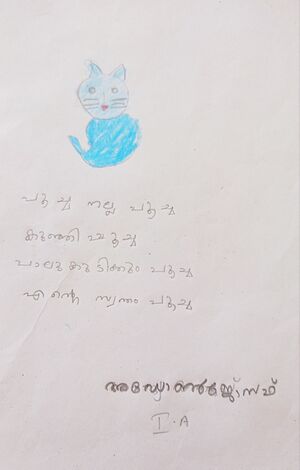 പൂച്ച നല്ല പൂച്ച
കുഞ്ഞി പൂച്ച
പാലു കുടിക്കും പൂച്ച
എന്റെ സ്വന്തം പൂച്ച
I.A